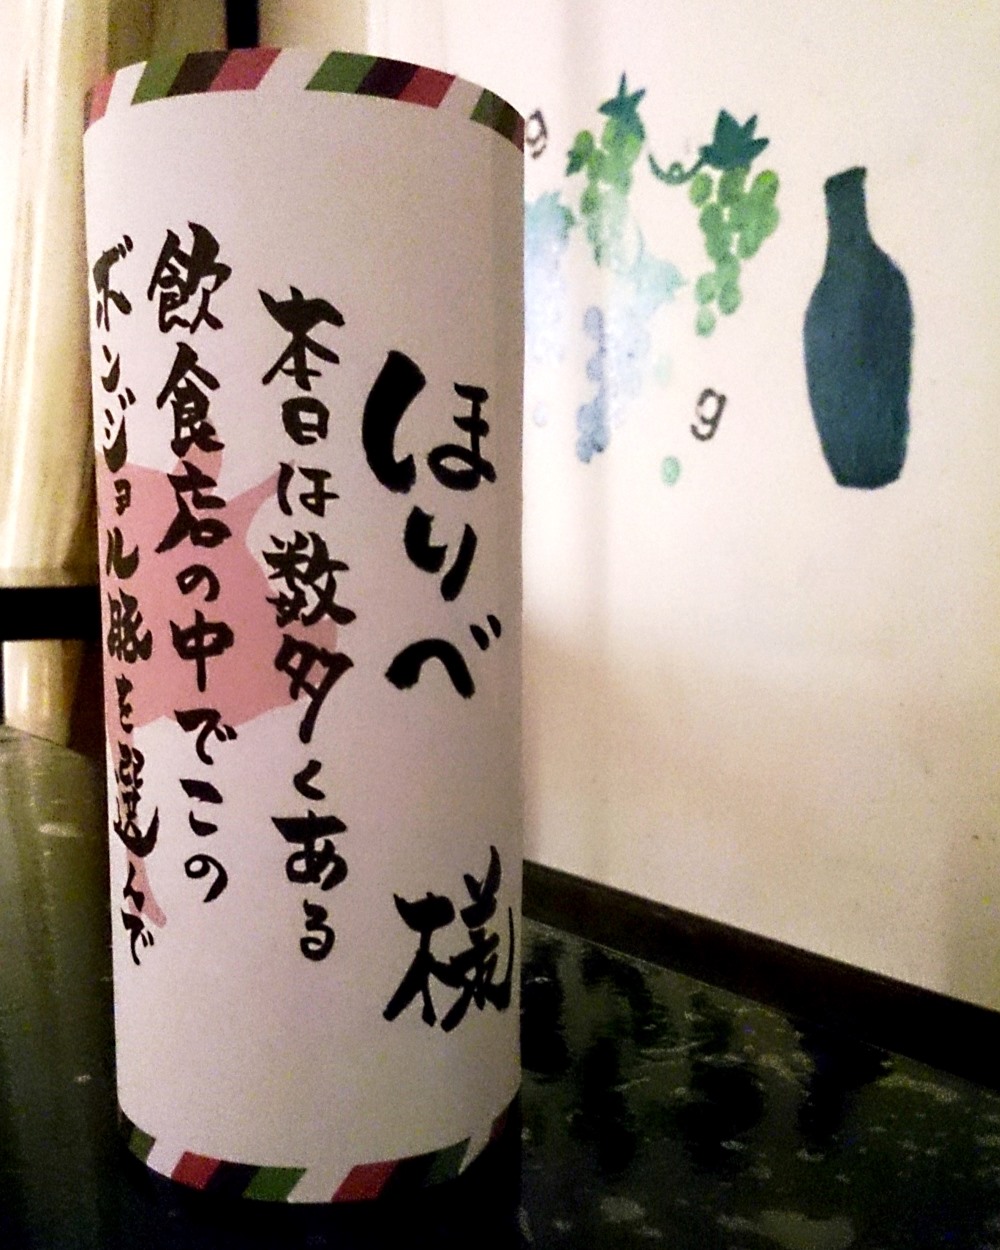 ほりべ 様
本日は数多くある
飲食店の中でこの
ボンジョル豚を選んで
g
g